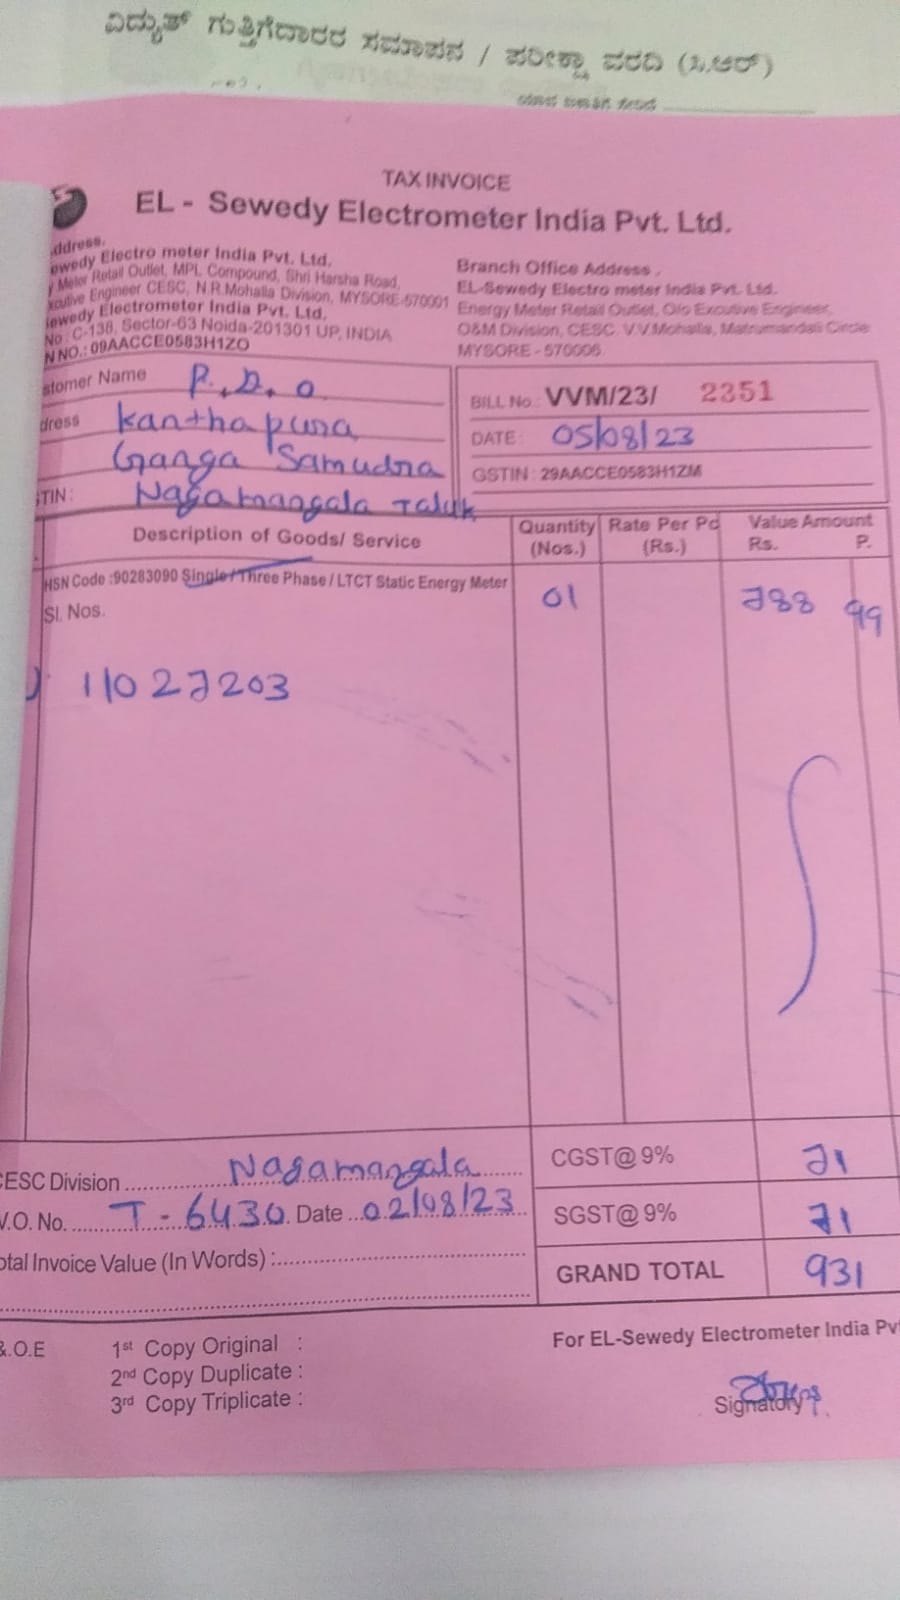 ವಿದ್ಯುತ್ ಗುತ್ತಿಗೆದಾರರ ಸಮಾಪನ / ಪರೀಕ್ಷಾ ವರದಿ (ಸಿ.ಆರ್)
TAX INVOICE
EL - Sewedy Electrometer India Pvt. Ltd.
ddress.
ewedy Electro meter India Pvt. Ltd.
y Meter Retail Outlet, MPL Compound, Shri Harsha Road,
xcutive Engineer CESC, N.R.Mohalla Division, MYSORE-570001
Sewedy Electrometer India Pvt. Ltd.
No : C-138, Sector-63 Noida-201301 UP, INDIA
N NO.: 09AACCE0583H1ZO
Branch Office Address ,
EL-Sewedy Electro meter India Pvt. Ltd.
Energy Meter Retail Outlet, O/o Excutive Engineer,
O&M Division, CESC. V.V.Mohalla, Matrumandali Circle
MYSORE - 570006
stomer Name P.D.O
dress Kanthapura
Ganga Samudra
STIN : Nagamangala Taluk
BILL No.: VVM/23/ 2351
DATE: 05/08/23
GSTIN : 29AACCE0583H1ZM
Description of Goods/ Service Quantity (Nos.) Rate Per Pc (Rs.) Value Amount Rs. P.
HSN Code :90283090 Single / Three Phase / LTCT Static Energy Meter 01 788 99
Sl. Nos.
11027203
CESC Division Nagamangala CGST@ 9% 71
W.O. No. T - 6430 Date 02/08/23 SGST@ 9% 71
otal Invoice Value (In Words) : GRAND TOTAL 931
&.O.E
1st Copy Original :
2nd Copy Duplicate :
3rd Copy Triplicate :
For EL-Sewedy Electrometer India Pv
Signatory